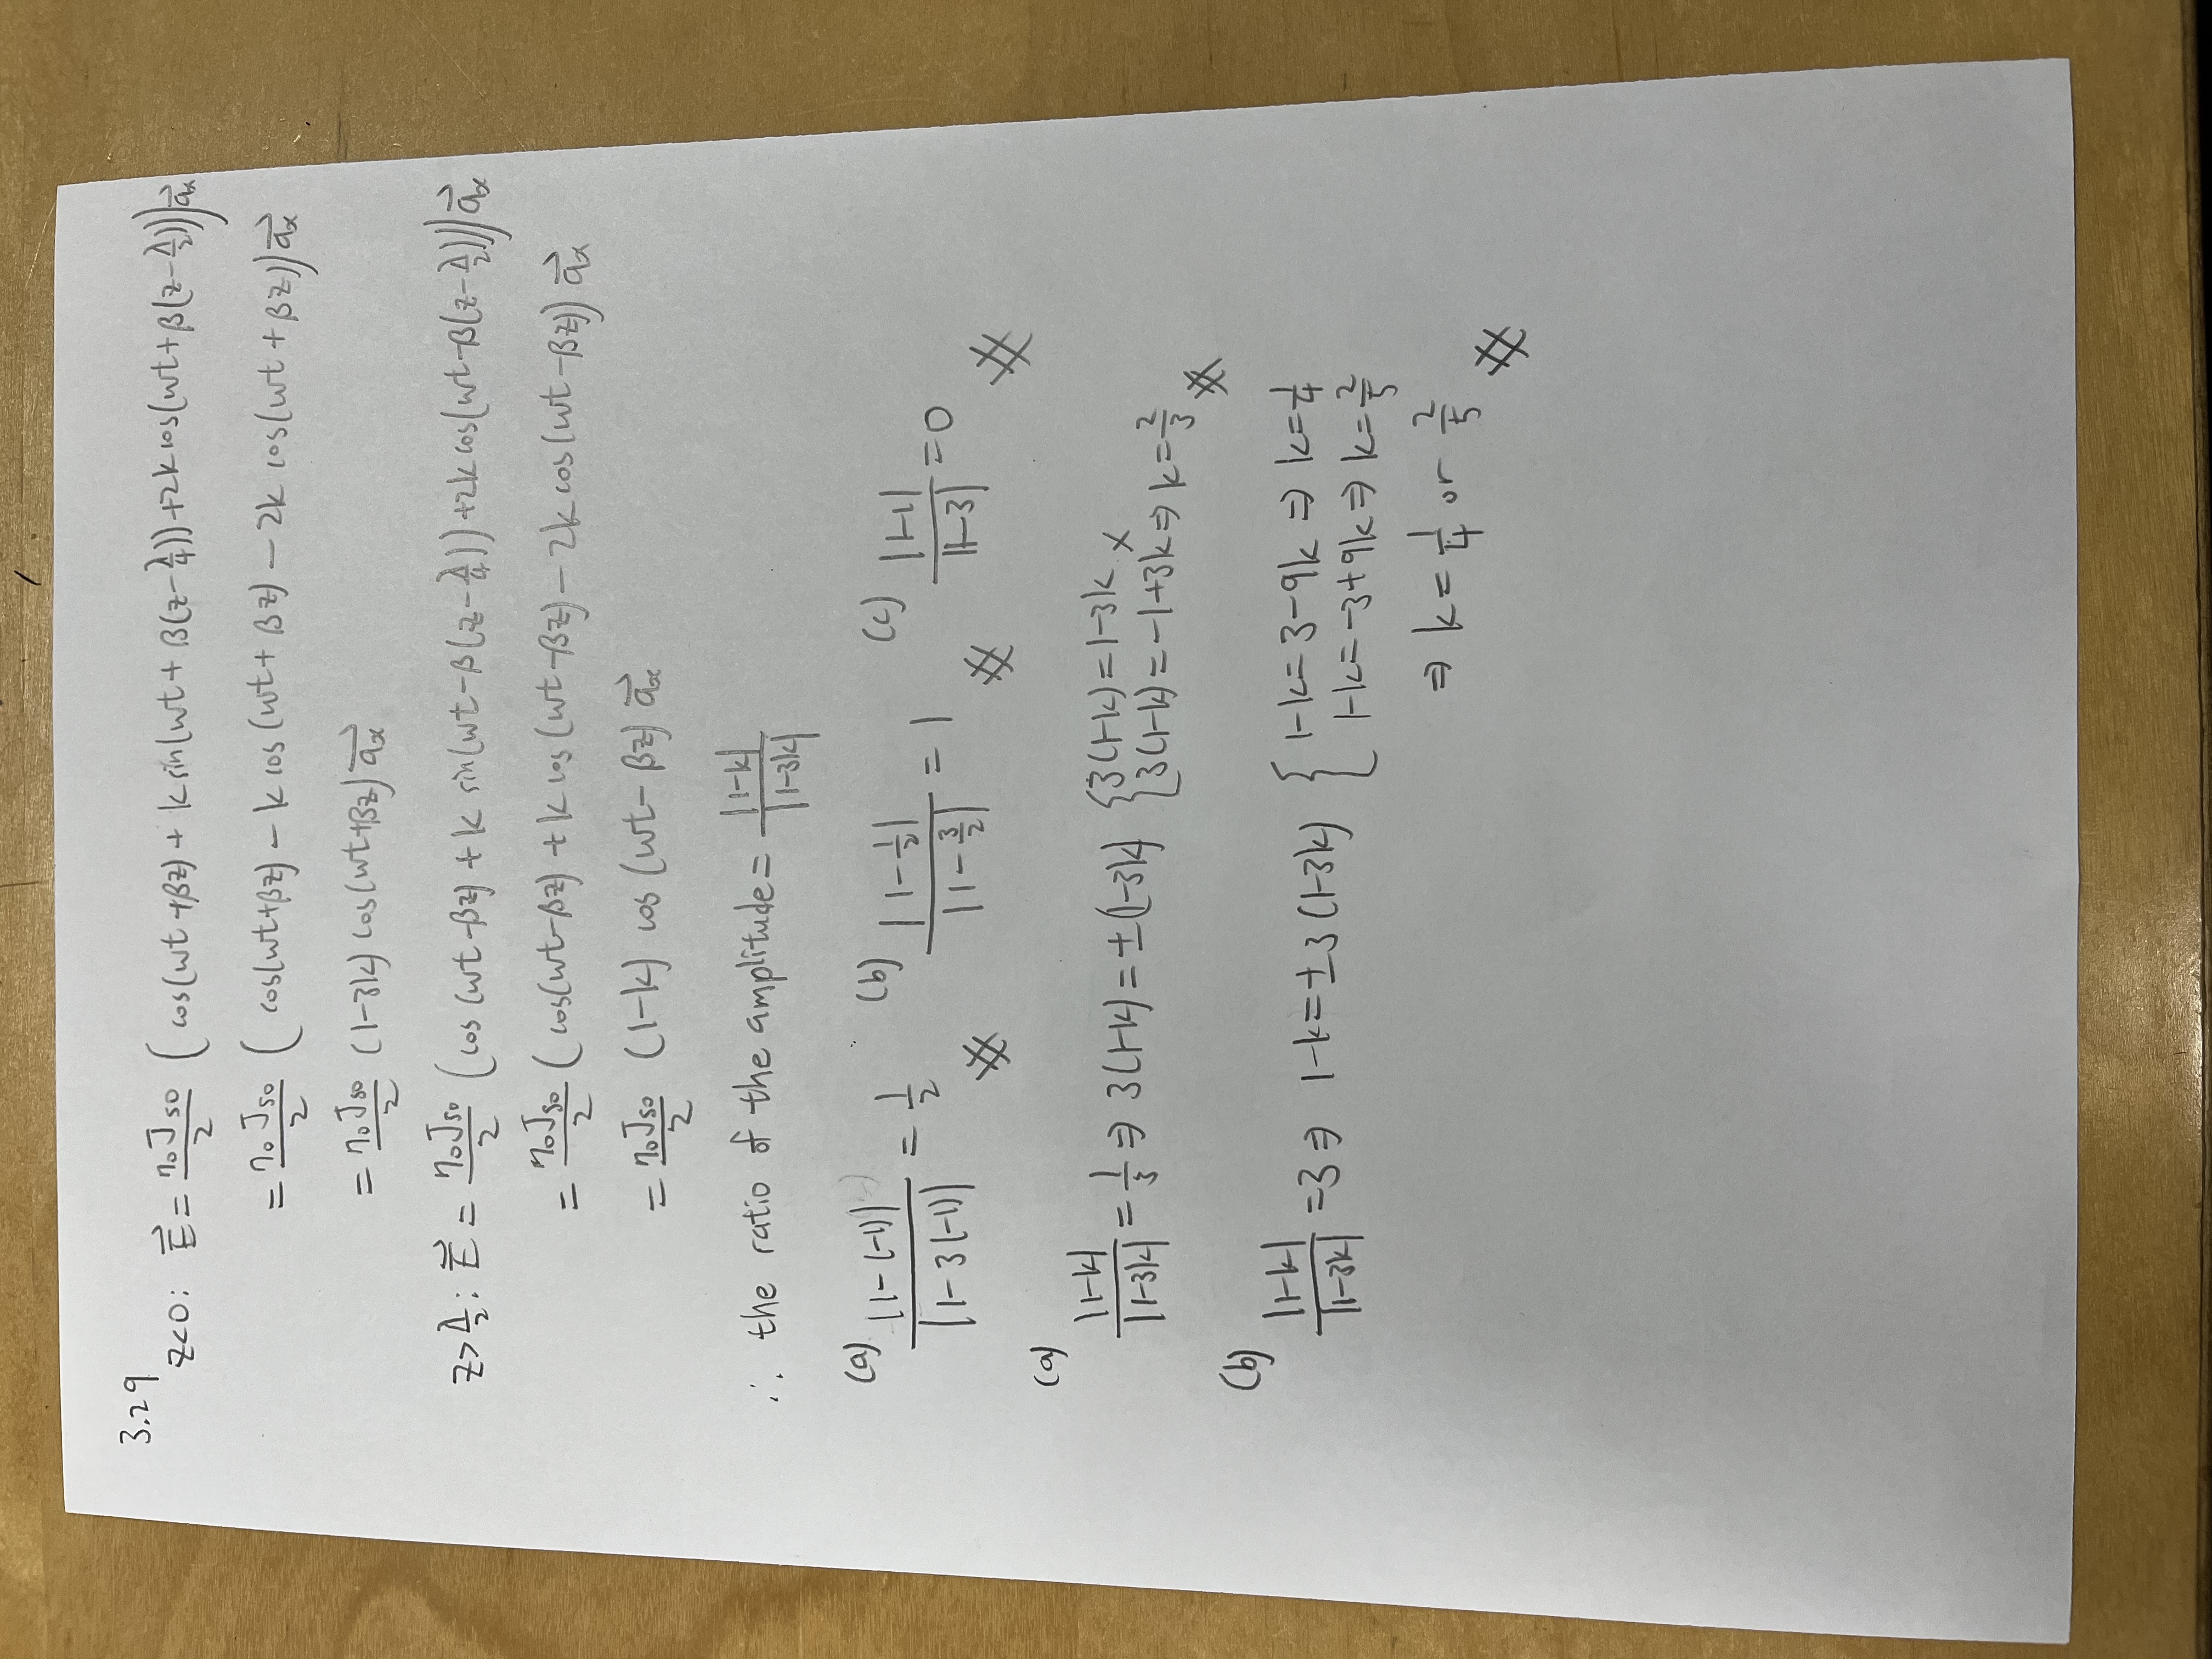 3.29
z<0: E⃗ = η₀J_S0/2 (cos(ωt+βz) + k sin(ωt + β(z-λ/4)) + 2k cos(ωt + β(z-λ/2))) a⃗ₓ
= η₀J_S0/2 (cos(ωt+βz) - k cos(ωt+βz) - 2k cos(ωt+βz)) a⃗ₓ
= η₀J_S0/2 (1-3k) cos(ωt+βz) a⃗ₓ
z>λ/2: E⃗ = η₀J_S0/2 (cos(ωt-βz) + k sin(ωt-β(z-λ/4)) + 2k cos(ωt-β(z-λ/2))) a⃗ₓ
= η₀J_S0/2 (cos(ωt-βz) + k cos(ωt-βz) - 2k cos(ωt-βz)) a⃗ₓ
= η₀J_S0/2 (1-k) cos(ωt-βz) a⃗ₓ
∴ the ratio of the amplitude = |1-k|/|1-3k|
(a) |1-(-1)|/|1-3(-1)| = 1/2 # (b) |1-1/2|/|1-3/2| = 1 # (c) |1-1|/|1-3| = 0 #
(a)
|1-k|/|1-3k| = 1/3 ⇒ 3(1-k) = ±(1-3k) { 3(1-k) = 1-3k ×
3(1-k) = -1+3k ⇒ k = 2/3 #
(b)
|1-k|/|1-3k| = 3 ⇒ 1-k = ±3(1-3k) { 1-k = 3-9k ⇒ k = 1/4
1-k = -3+9k ⇒ k = 2/5
⇒ k = 1/4 or 2/5 #